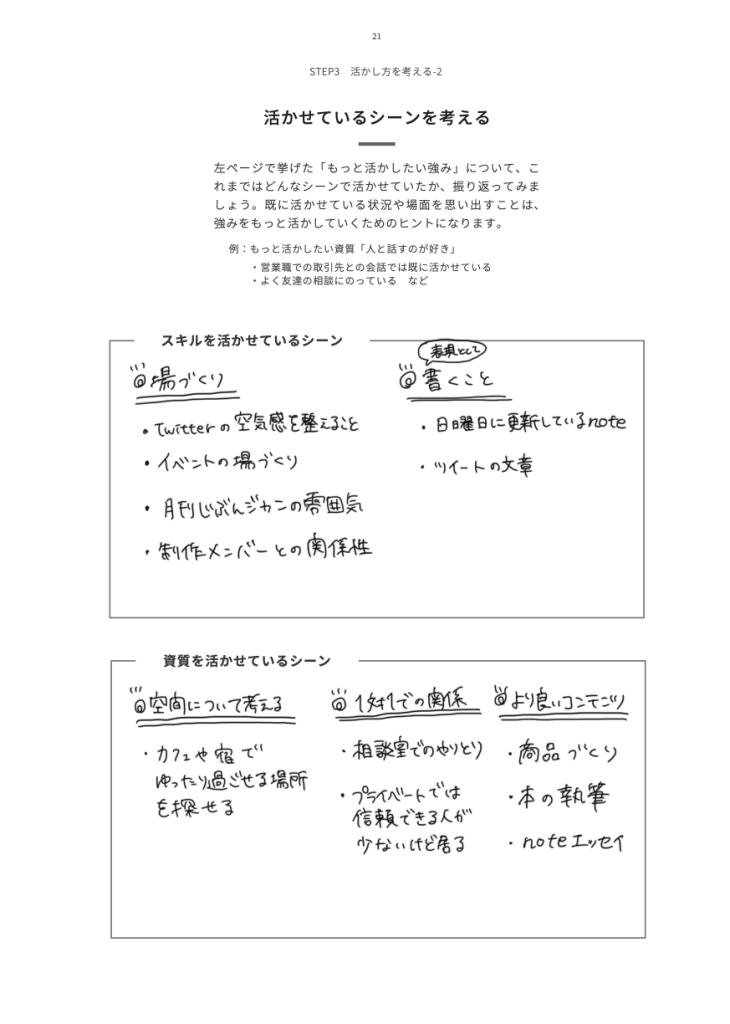 21
STEP3 活かし方を考える-2
活かせているシーンを考える
左ページで挙げた「もっと活かしたい強み」について、こ
れまではどんなシーンで活かせていたか、振り返ってみま
しょう。既に活かせている状況や場面を思い出すことは、
強みをもっと活かしていくためのヒントになります。
例：もっと活かしたい資質「人と話すのが好き」
・営業職での取引先との会話では既に活かせている
・よく友達の相談にのっている　など
スキルを活かせているシーン
◎場づくり
・twitterの空気感を整えること
・イベントの場づくり
・月刊じぶんジカンの雰囲気
・制作メンバーとの関係性
表現として
◎書くこと
・日曜日に更新しているnote
・ツイートの文章
資質を活かせているシーン
◎空間について考える
・カフェや宿で
ゆったり過ごせる場所
を探せる
◎1対1での関係
・相談室でのやりとり
・プライベートでは
信頼できる人が
少ないけど居る
◎より良いコンテンツ
・商品づくり
・本の執筆
・noteエッセイ